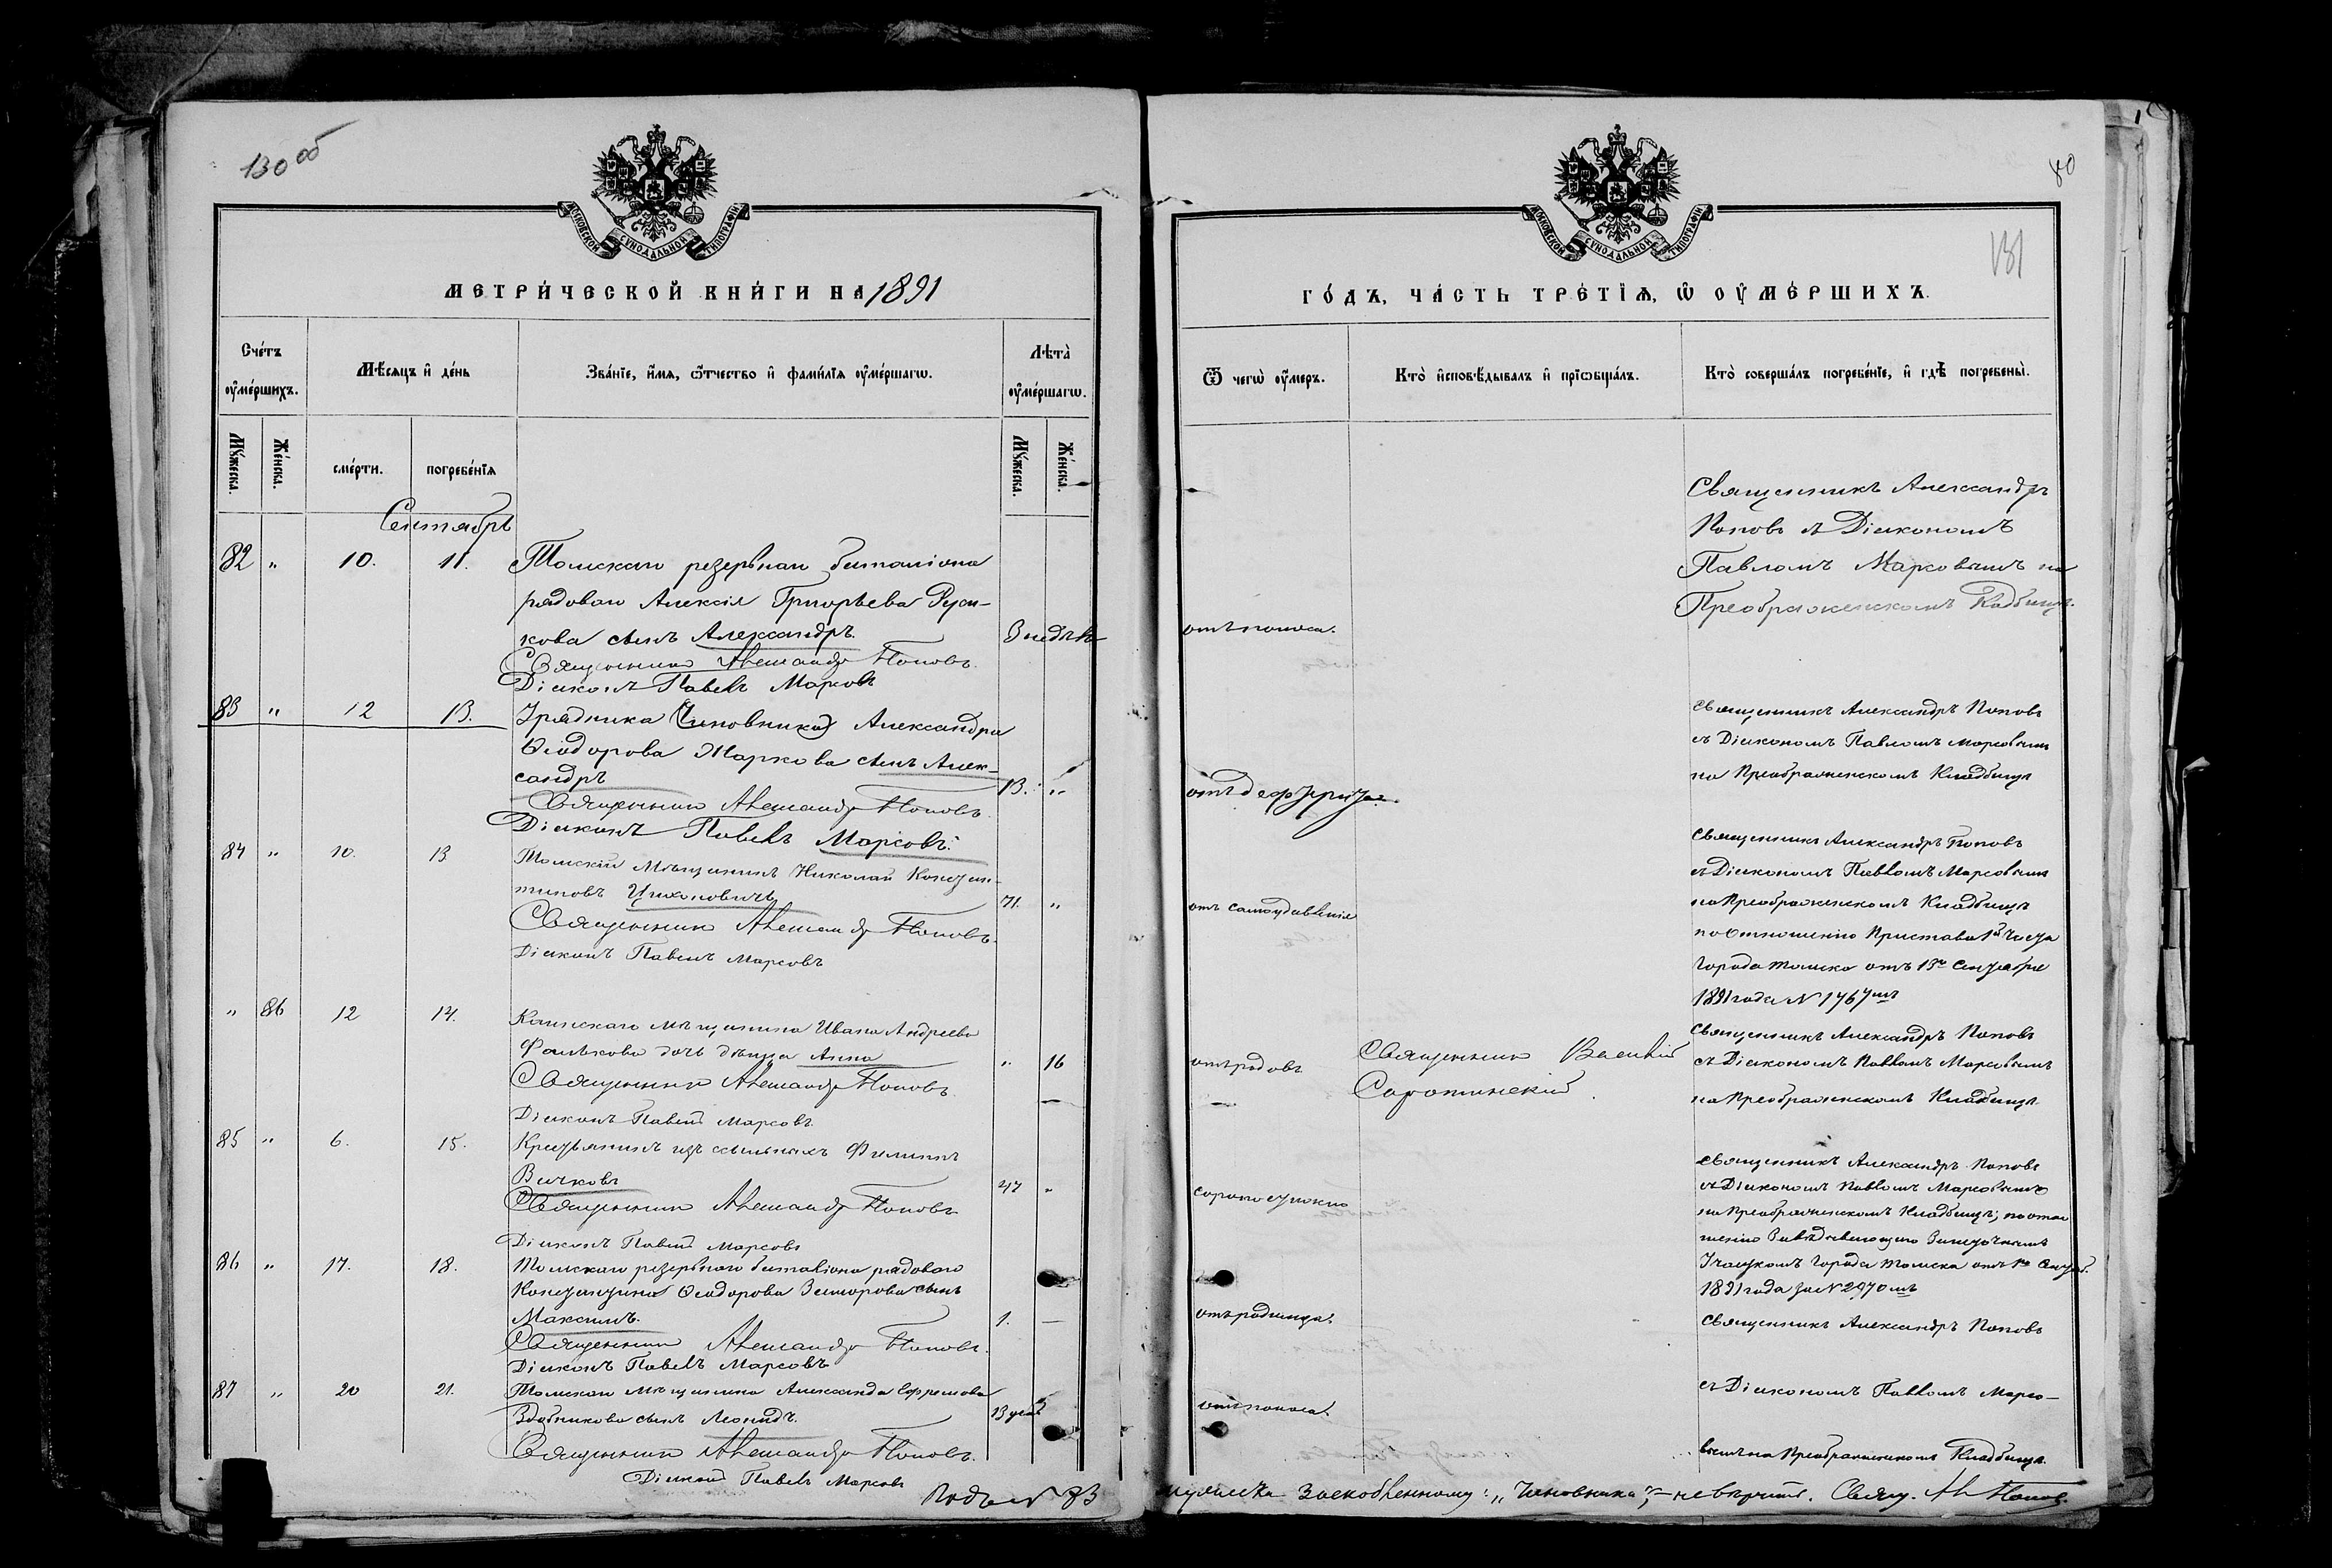 130 об
МОСКОВСКОЙ СѴНОДАЛЬНОЙ ТИПОГРАФІИ
МЕТРИ́ЧЕСКОЙ КНИ́ГИ НА 1891
Сче́тъ оу҆ме́ршихъ.
Мѣ́сяцъ и҆ де́нь
Зва́нїе, и҆́мя, ѻ҆́тчество и҆ фами́лїя оу҆ме́ршагѡ.
Лѣта̀ оу҆ме́ршагѡ.
Мꙋ́жеска.
Же́нска.
сме́рти.
погребе́нїя
Мꙋ́жеска.
Же́нска.
Сентябрь
82 " 10. 11. Томскаго резервнаго баталіона
рядоваго Алексія Григорьева Руси-
кова сынъ Александръ. 3 недѣль
Священникъ Александръ Поповъ.
Діаконъ Павелъ Марсовъ
83 " 12 13. Урядника (Чиновника) Александра
Ѳеодорова Маркова сынъ Алек-
сандръ 13. "
Священникъ Александръ Поповъ.
Діаконъ Павелъ Марсовъ.
84 " 10. 13 Томскій Мѣщанинъ Николай Констан-
тиновъ Цихоновичъ 71. "
Священникъ Александръ Поповъ.
Діаконъ Павелъ Марсовъ
" 86 12 14. Каинскаго мѣщанина Ивана Андреева
Фалькова дочь дѣвица Анна " 16
Священникъ Александръ Поповъ.
Діаконъ Павелъ Марсовъ.
85 " 6. 15. Крестьянинъ изъ ссыльныхъ Филиппъ
Бычковъ 47 "
Священникъ Александръ Поповъ
Діаконъ Павелъ Марсовъ
86 " 17. 18. Томскаго резервнаго баталіона рядоваго
Константина Ѳеодорова сынъ
Максимъ. 1. —
Священникъ Александръ Поповъ.
Діаконъ Павелъ Марсовъ
87 " 20 21. Томскаго мѣщанина Александра Ефремова
сынъ Леонидъ. 13
Священникъ Александръ Поповъ.
Діаконъ Павелъ Марсовъ
Подъ № 83
80
131
МОСКОВСКОЙ СѴНОДАЛЬНОЙ ТИПОГРАФІИ
ГО́ДЪ, ЧА́СТЬ ТРЕ́ТЇЯ, Ѡ҆ ОУ҆МЕ́РШИХЪ.
Ѿ чегѡ̀ оу҆́меръ.
Кто̀ и҆сповѣ́дывалъ и҆ прїѡбща́лъ.
Кто̀ соверша́лъ погребе́нїе, и҆ гдѣ̀ погребены̀.
Священникъ Александръ
Поповъ съ Діакономъ
Павломъ Марсовымъ на
Преображенскомъ Кладбищѣ.
отъ поноса.
Священникъ Александръ Поповъ
съ Діакономъ Павломъ Марсовымъ
на Преображенскомъ Кладбищѣ
отъ
Священникъ Александръ Поповъ
съ Діакономъ Павломъ Марсовымъ
на Преображенскомъ Кладбищѣ
по отношенію Пристава 1й части
города Томска отъ 13го Сентября
1891 года № 1767мъ
отъ самоудавленія
Священникъ Александръ Поповъ
съ Діакономъ Павломъ Марсовымъ
на Преображенскомъ Кладбищѣ
отъ родовъ
Священникъ Василій
Соротинскій
Священникъ Александръ Поповъ
съ Діакономъ Павломъ Марсовымъ
на Преображенскомъ Кладбищѣ; по отно
шенію
города Томска отъ
1891 года за № 2970мъ
скоропостижно
Священникъ Александръ Поповъ
отъ родимца.
съ Діакономъ Павломъ Марсо-
вымъ на Преображенскомъ Кладбищѣ.
отъ поноса.
заскобленному: „Чиновника", – не вѣрить. Свящ. Ал Поповъ.